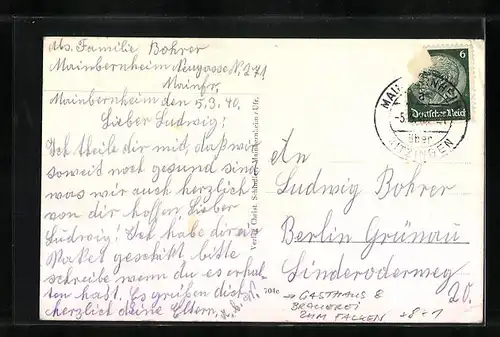 Abs. Familie Bohrer
Mainbernheim Neugasse N. 271
Mainfr.
Mainbernheim den 5.3.40.
Lieber Ludwig!
Ich theile dir mit, daß wir
soweit noch gesund sind
was wir auch herzlich
von dir hoffen, Lieber
Ludwig! Ich habe dir ein
Paket geschikt, bitte
schreibe wenn du es erhal-
ten hast. Es grüßen dich
herzlich deine Eltern,
Verlag Christ. Schindler, Mainbernheim/Ufr.
704c
6
Deutsches Reich
MAIN
über
KITZINGEN
An
Ludwig Bohrer
Berlin Grünau
Linderoderweg
20.
→ GASTHAUS &
BRAUEREI
ZUM FALKEN
+8+1